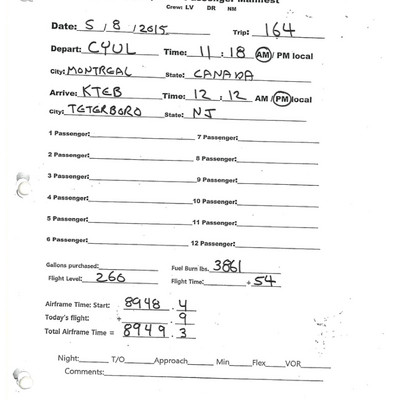 Passenger Manifest
Crew: LV DR NM
Date: 5/8/2015 Trip: 164
Depart: CYUL Time: 11:18 AM / PM local
City: MONTREAL State: CANADA
Arrive: KTEB Time: 12:12 AM / PM local
City: TETERBORO State: NJ
1 Passenger: 7 Passenger:
2 Passenger: 8 Passenger:
3 Passenger: 9 Passenger:
4 Passenger: 10 Passenger:
5 Passenger: 11 Passenger:
6 Passenger: 12 Passenger:
Gallons purchased: Fuel Burn lbs. 3861
Flight Level: 260 Flight Time: + 54
Airframe Time: Start: 8948.4
Today's flight: + .9
Total Airframe Time = 8949.3
Night: T/O Approach Min Flex VOR
Comments: